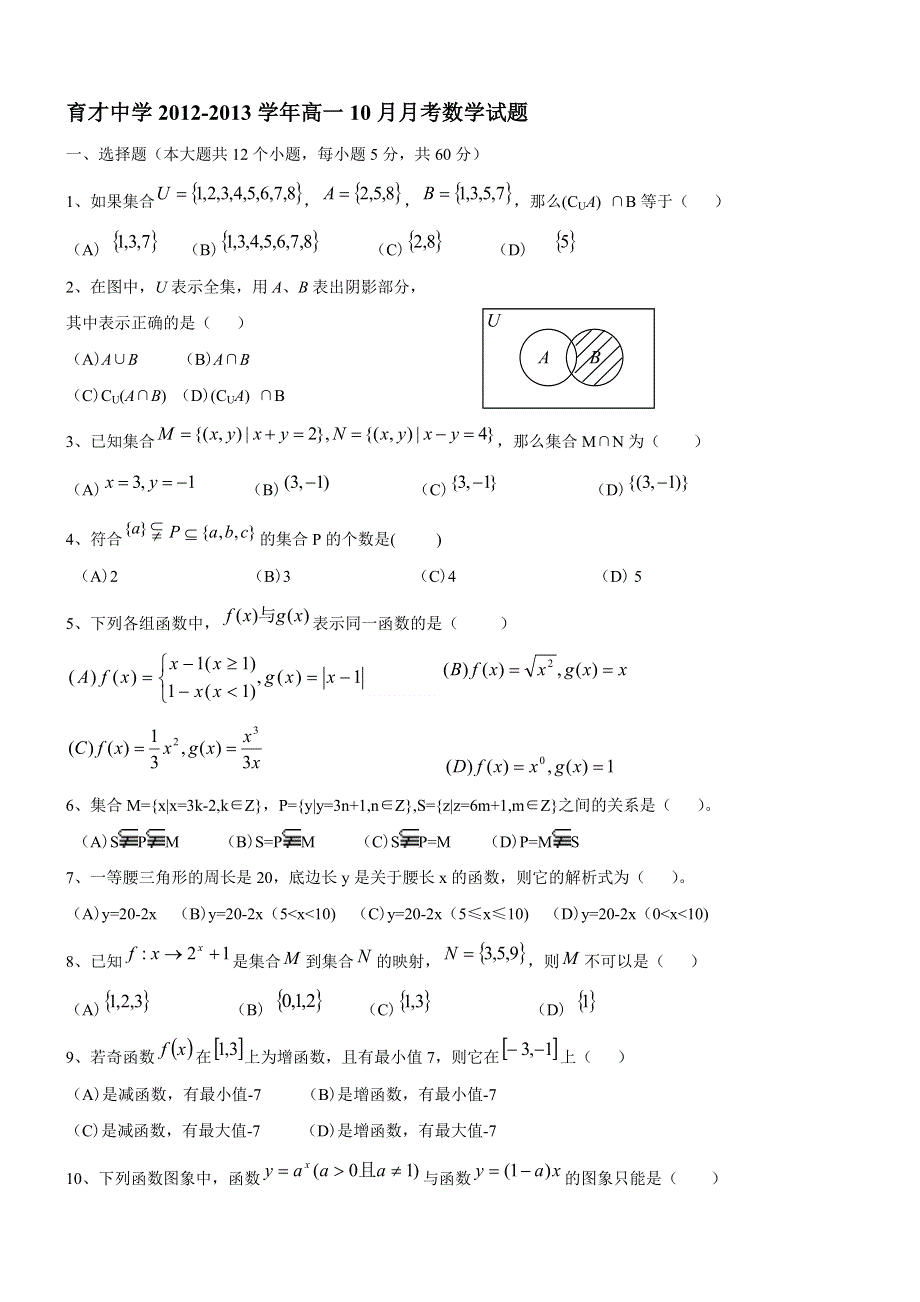 育才中学 2012-2013 学年高一 10 月月考数学试题
一、选择题（本大题共 12 个小题，每小题 5 分，共 60 分）
1、如果集合 U = {1,2,3,4,5,6,7,8}，A = {2,5,8}，B = {1,3,5,7}，那么(C_U A) ∩B 等于（ ）
（A） {1,3,7} （B）{1,3,4,5,6,7,8} （C）{2,8} （D） {5}
2、在图中，U 表示全集，用 A、B 表出阴影部分，
其中表示正确的是（ ）
（A）A∪B （B）A∩B
（C）C_U(A∩B) （D）(C_U A) ∩B
U
A B
3、已知集合 M = {(x, y) | x + y = 2}, N = {(x, y) | x − y = 4}，那么集合 M∩N 为（ ）
（A） x = 3, y = −1 （B） (3, −1) （C） {3, −1} （D） {(3, −1)}
4、符合 {a} ⫋ P ⊆ {a, b, c} 的集合 P 的个数是( )
（A）2 （B）3 （C）4 （D）5
5、下列各组函数中， f(x)与g(x) 表示同一函数的是（ ）
(A) f(x) = { x − 1(x ≥ 1) 1 − x(x < 1) , g(x) = |x − 1| (B) f(x) = √x², g(x) = x
(C) f(x) = 1/3 x², g(x) = x³/3x (D) f(x) = x⁰, g(x) = 1
6、集合 M={x|x=3k-2,k∈Z}，P={y|y=3n+1,n∈Z},S={z|z=6m+1,m∈Z}之间的关系是（ ）。
（A）S⫋P⫋M （B）S=P⫋M （C）S⫋P=M （D）P=M⫋S
7、一等腰三角形的周长是 20，底边长 y 是关于腰长 x 的函数，则它的解析式为（ ）。
（A）y=20-2x （B）y=20-2x（5<x<10） （C）y=20-2x（5≤x≤10） （D）y=20-2x（0<x<10）
8、已知 f : x → 2ˣ + 1 是集合 M 到集合 N 的映射， N = {3,5,9}，则 M 不可以是（ ）
（A）{1,2,3} （B） {0,1,2} （C）{1,3} （D） {1}
9、若奇函数 f(x) 在 [1,3] 上为增函数，且有最小值 7，则它在 [− 3,−1] 上（ ）
（A）是减函数，有最小值-7 （B）是增函数，有最小值-7
（C）是减函数，有最大值-7 （D）是增函数，有最大值-7
10、下列函数图象中，函数 y = aˣ (a > 0且a ≠ 1) 与函数 y = (1 − a)x 的图象只能是（ ）